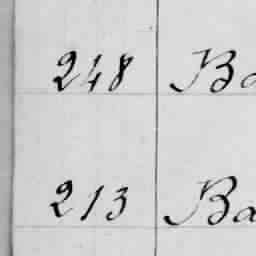 248 Ba
213 Ba